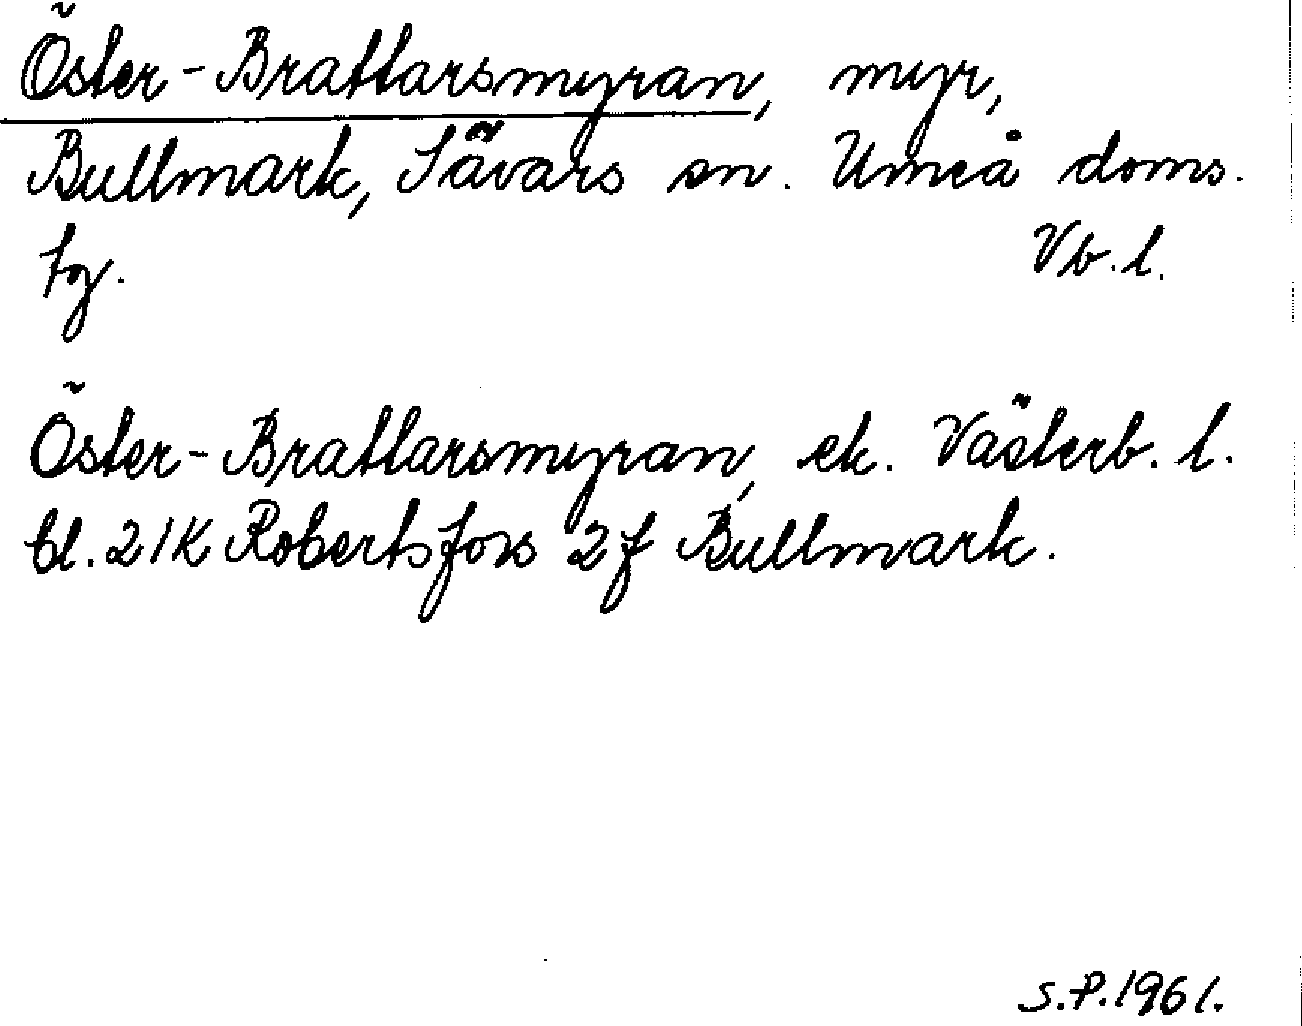 Öster-Brattarsmyran, myr,
Bullmark, Sävars sn. Umeå doms.
tg. Vb. l.
Öster-Brattarsmyran, ek. Västerb. l.
bl. 21K Robertsfors 2f Bullmark.
S.P. 1961.